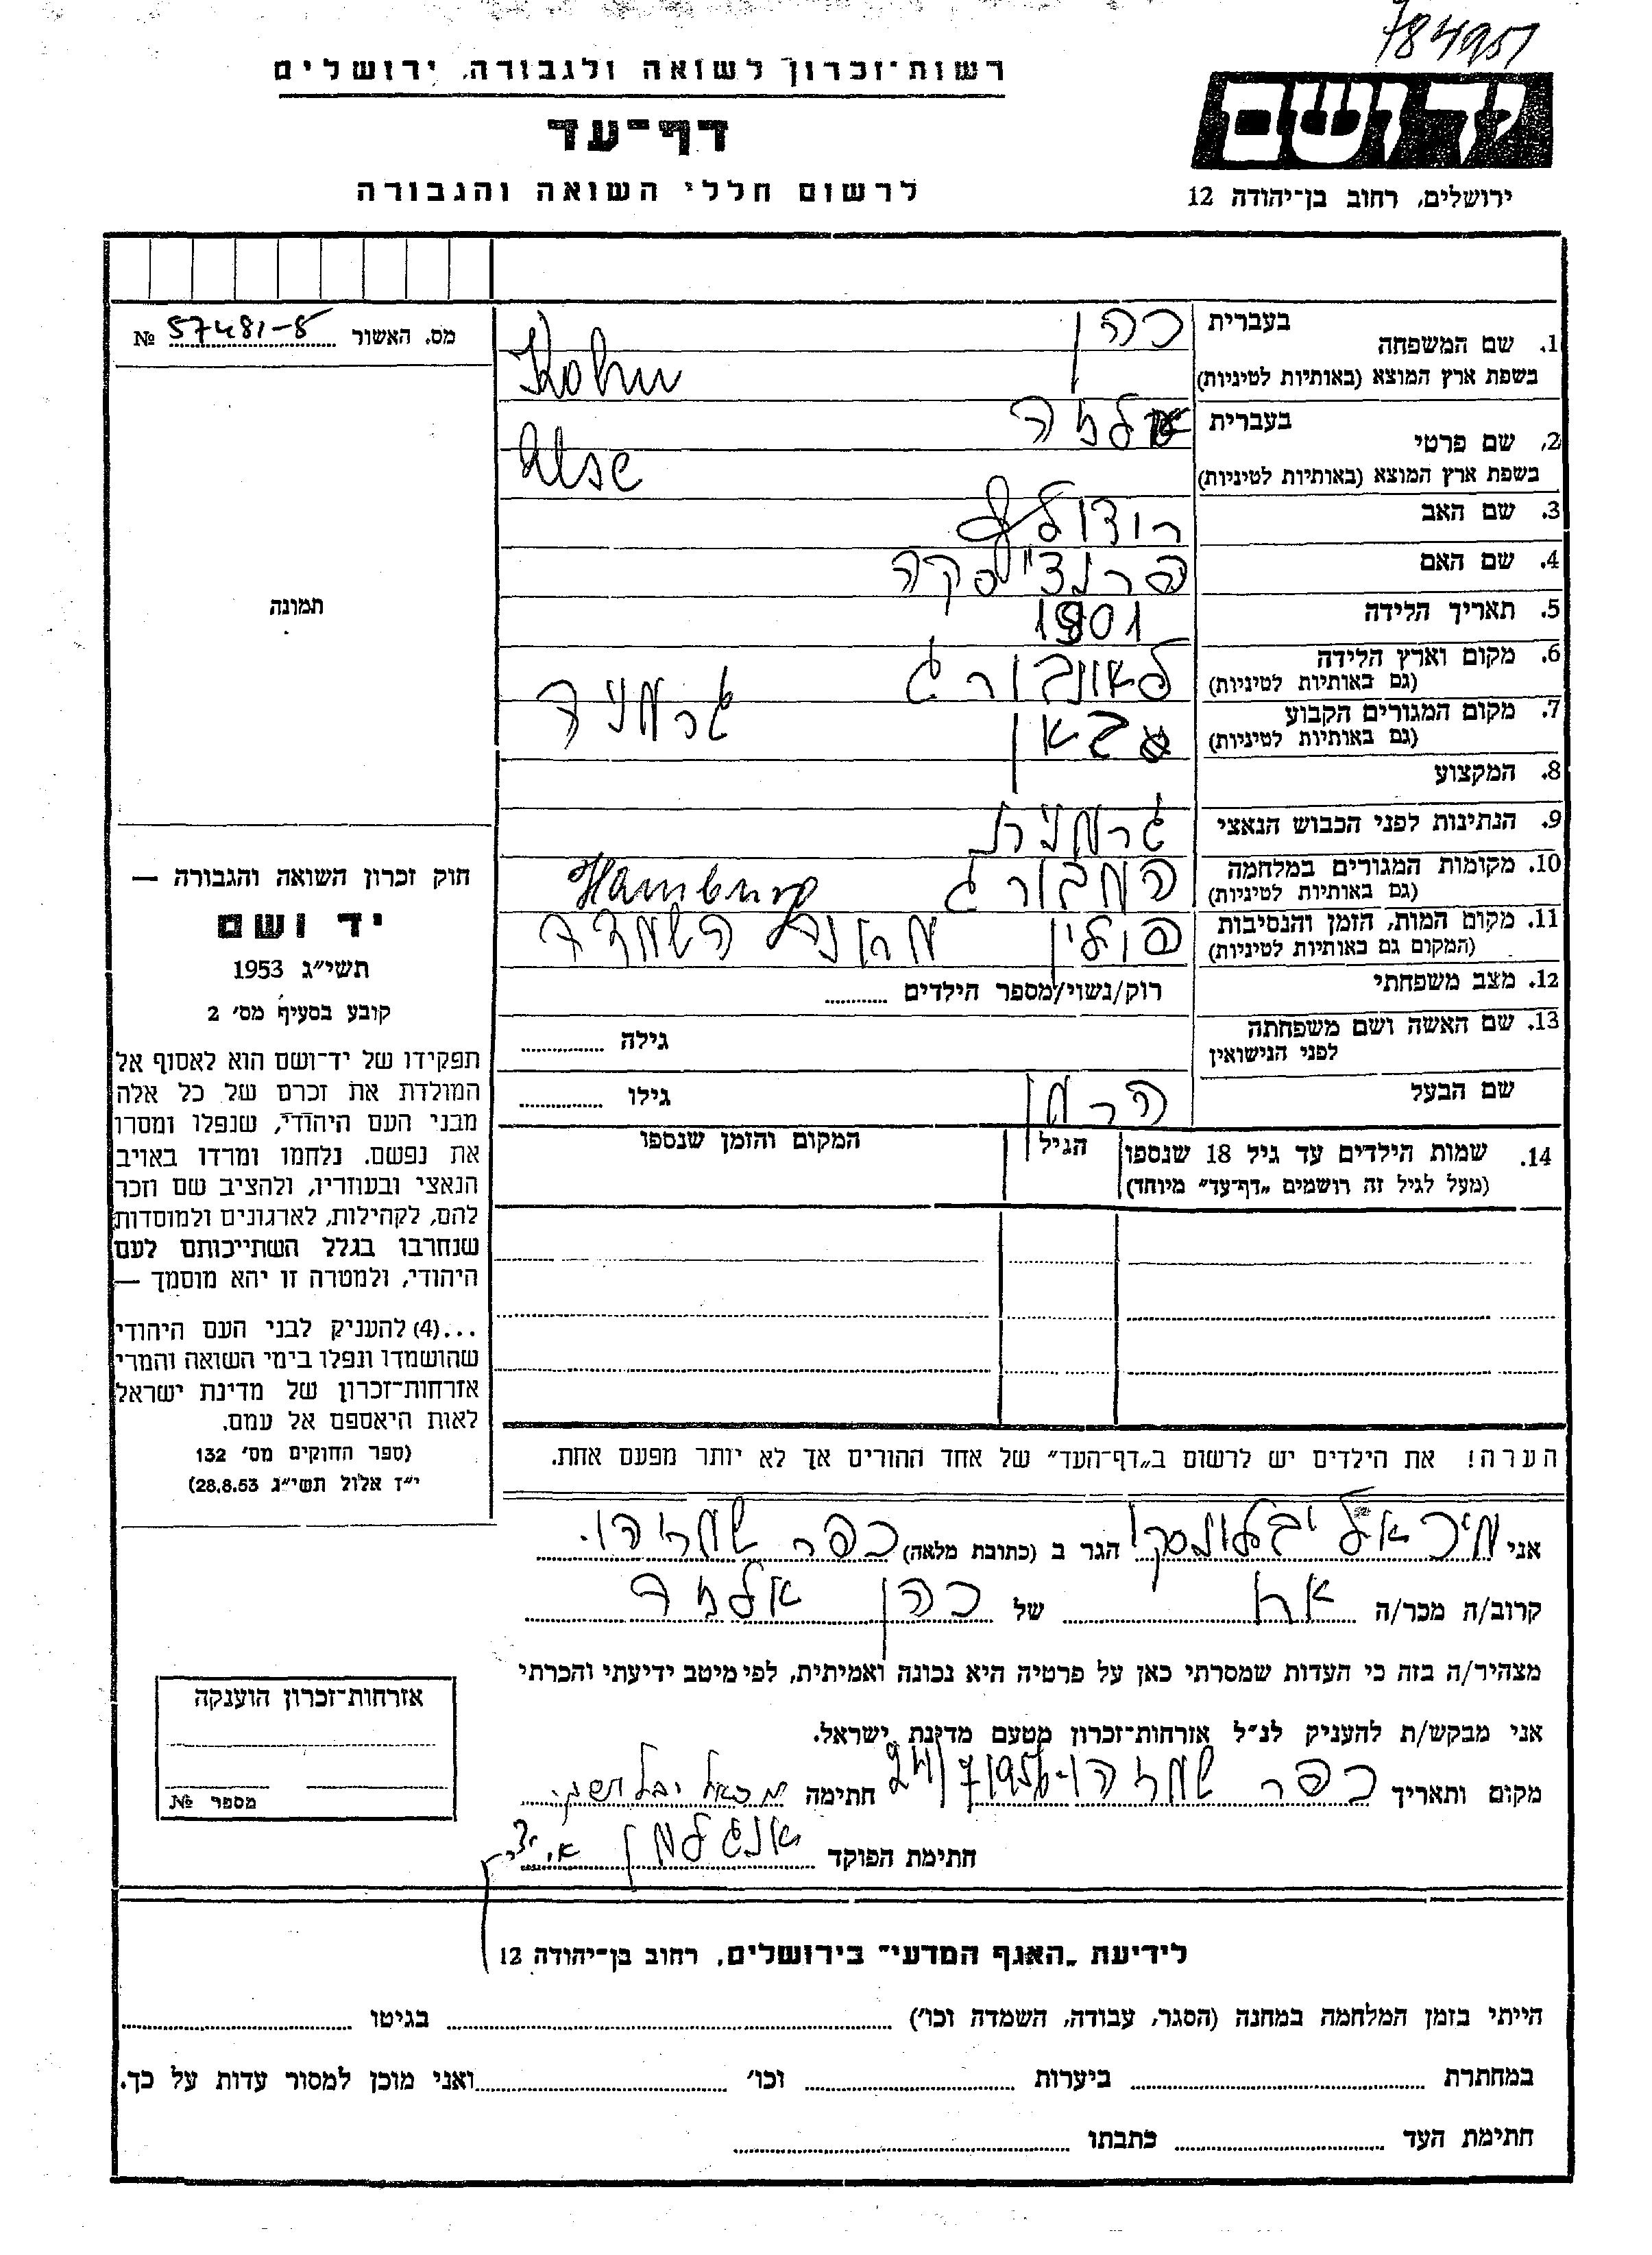 784951
רשות־זכרון לשואה ולגבורה, ירושלים
יד ושם
דף־עד
לרשום חללי השואה והגבורה
ירושלים, רחוב בן־יהודה 12
מס. האשור № 57481-5
1. שם המשפחה בעברית כהן
בשפת ארץ המוצא (באותיות לטיניות) Kohn
2. שם פרטי בעברית אלזה
בשפת ארץ המוצא (באותיות לטיניות)
3. שם האב רודולף
4. שם האם פרנציסקה
5. תאריך הלידה 1901
6. מקום וארץ הלידה גרמניה
(גם באותיות לטיניות)
7. מקום המגורים הקבוע כאן
(גם באותיות לטיניות)
8. המקצוע
9. הנתינות לפני הכבוש הנאצי גרמנית
10. מקומות המגורים במלחמה המבורג Hamburg
(גם באותיות לטיניות)
11. מקום המות, הזמן והנסיבות פולין מחנה השמדה
(המקום גם באותיות לטיניות)
12. מצב משפחתי רוק/נשוי/מספר הילדים
13. שם האשה ושם משפחתה לפני הנישואין גילה
שם הבעל הרמן גילו
14. שמות הילדים עד גיל 18 שנספו הגיל המקום והזמן שנספו
(מעל לגיל זה רושמים „דף־עד” מיוחד)
הערה! את הילדים יש לרשום ב„דף־העד” של אחד ההורים אך לא יותר מפעם אחת.
תמונה
חוק זכרון השואה והגבורה —
יד ושם
תשי״ג 1953
קובע בסעיף מס׳ 2
תפקידו של יד־ושם הוא לאסוף אל
המולדת את זכרם של כל אלה
מבני העם היהודי, שנפלו ומסרו
את נפשם. נלחמו ומרדו באויב
הנאצי ובעוזריו, ולהציב שם וזכר
להם, לקהילות, לארגונים ולמוסדות
שנחרבו בגלל השתייכותם לעם
היהודי, ולמטרה זו יהא מוסמך —
...(4) להעניק לבני העם היהודי
שהושמדו ונפלו בימי השואה והמרי
אזרחות־זכרון של מדינת ישראל
לאות היאספם אל עמם.
(ספר החוקים מס׳ 132
י״ז אלול תשי״ג 28.8.53)
אני מיכאל יבלונסקי הגר ב (כתובת מלאה) כפר שמריהו.
קרוב/ה מכר/ה אח של כהן אלזה
מצהיר/ה בזה כי העדות שמסרתי כאן על פרטיה היא נכונה ואמיתית, לפי מיטב ידיעתי והכרתי
אני מבקש/ת להעניק לנ״ל אזרחות־זכרון מטעם מדינת ישראל.
מקום ותאריך כפר שמריהו 24/7/1956 חתימה מיכאל יבלונסקי
חתימת הפוקד אנגלמן
אזרחות־זכרון הוענקה
מספר №
לידיעת „האגף המדעי” בירושלים, רחוב בן־יהודה 12
הייתי בזמן המלחמה במחנה (הסגר, עבודה, השמדה וכו׳) בגיטו
במחתרת ביערות וכו׳ ואני מוכן למסור עדות על כך.
חתימת העד כתבתו